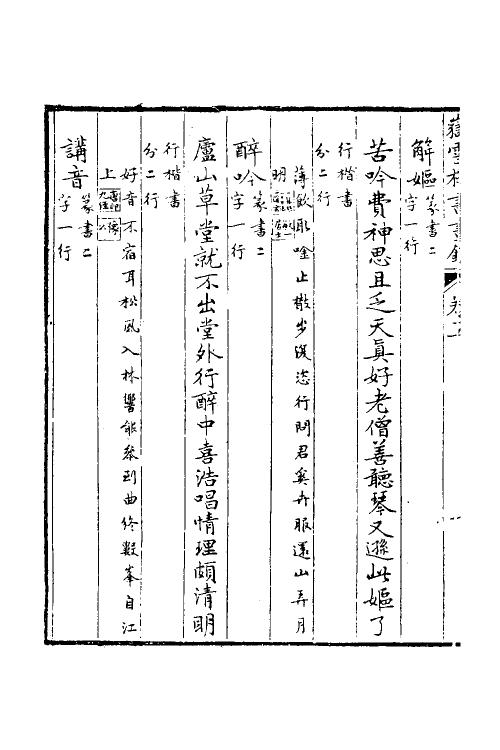 嶽雪樓書畫錄 卷二
解嫗篆書二字一行
苦吟費神思且乏天真好老僧善聽琴又遜此嫗了
行楷書
分二行
薄飲聊啥止散步後恣行問君奚卉服還山弄月
明
醉吟篆書二字一行
廬山草堂就不出堂外行醉中喜浩唱情理頗清明
行楷書
分二行
好音不宿耳松風入林響能參到曲終數峯自江
上
講音篆書二字一行